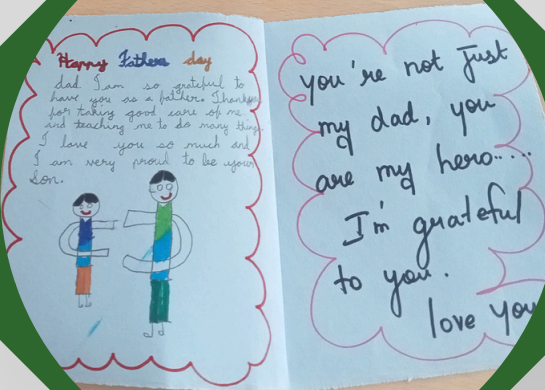 Happy Fathers day
dad I am so grateful to
have you as a father. Thanks
for taking good care of me
and teaching me to do many things.
I love you so much and
I am very proud to be your
Son.
you're not Just
my dad, you
are my hero.....
I'm grateful
to you.
love you